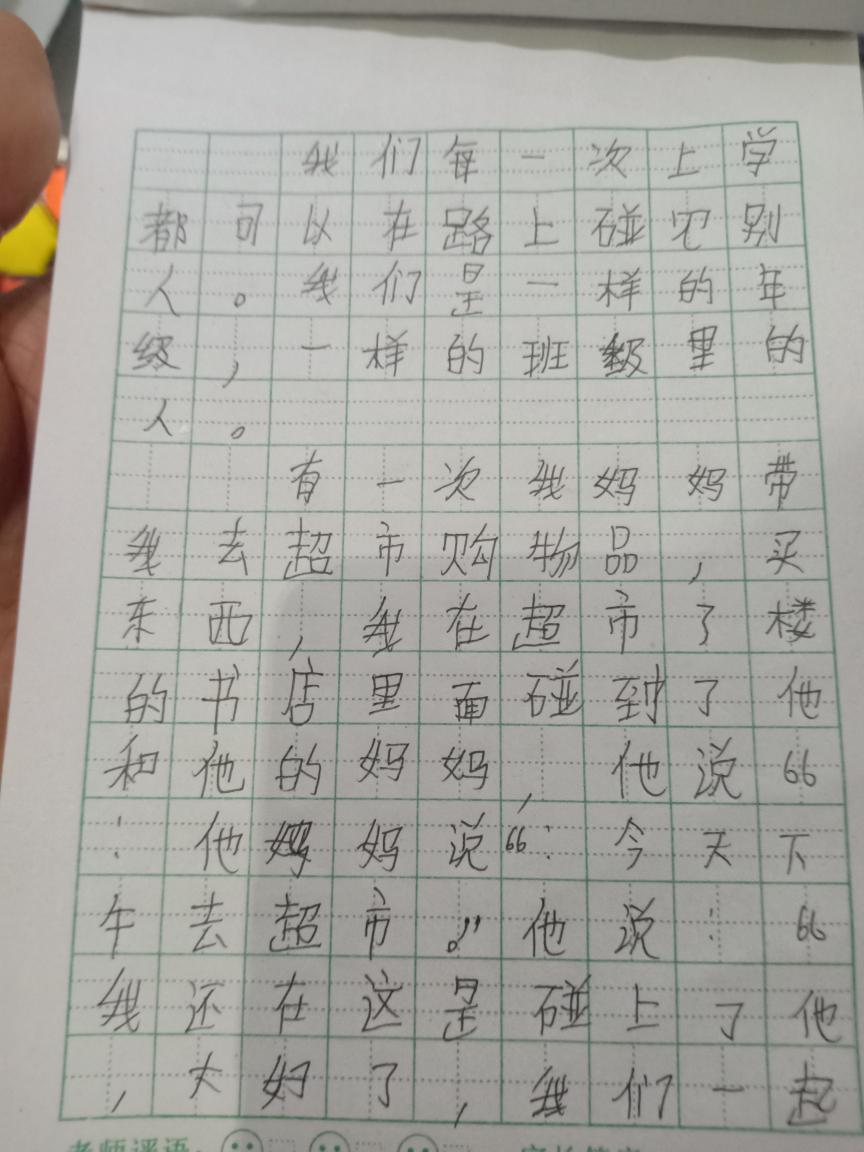 我们每一次上学
都可以在路上碰见别
人。我们是一样的年
级，一样的班级里的
人。
有一次我妈妈带
我去超市购物品，买
东西，我在超市了楼
的书店里面碰到了他
和他的妈妈，他说“
：他妈妈说“：今天下
午去超市。”他说：“
我还在这是碰上了他
，太好了，我们一起
老师评语：